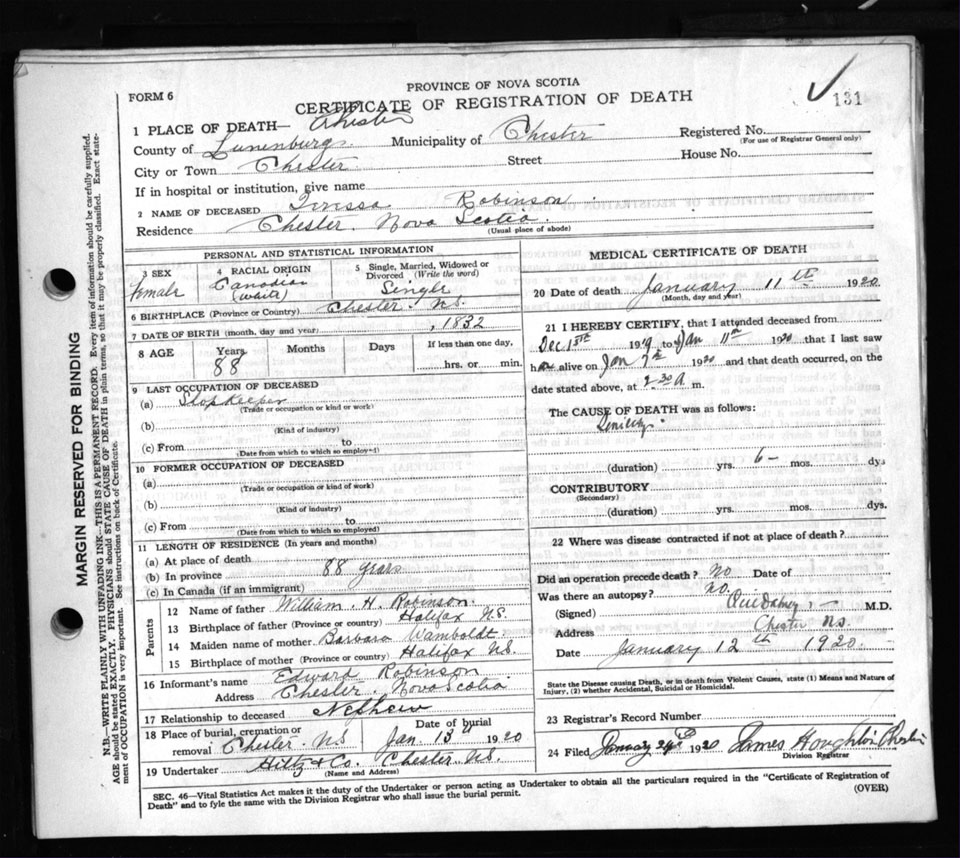 PROVINCE OF NOVA SCOTIA
FORM 6
CERTIFICATE OF REGISTRATION OF DEATH
131
1 PLACE OF DEATH— Chester
County of Lunenburg Municipality of Chester Registered No.
(For use of Registrar General only)
City or Town Chester Street House No.
If in hospital or institution, give name
2 NAME OF DECEASED Terissa Robinson
Residence Chester. Nova Scotia.
(Usual place of abode)
PERSONAL AND STATISTICAL INFORMATION
3 SEX Female
4 RACIAL ORIGIN Canadian (White)
5 Single, Married, Widowed or Divorced (Write the word) Single
6 BIRTHPLACE (Province or Country) Chester. N.S.
7 DATE OF BIRTH (month, day and year) , 1832
8 AGE Years 88 Months Days If less than one day, hrs. or min.
9 LAST OCCUPATION OF DECEASED
(a) Shopkeeper
(Trade or occupation or kind or work)
(b)
(Kind of industry)
(c) From to
(Date from which to which so employed)
10 FORMER OCCUPATION OF DECEASED
(a)
(Trade or occupation or kind of work)
(b)
(Kind of industry)
(c) From to
(Date from which to which so employed)
11 LENGTH OF RESIDENCE (In years and months)
(a) At place of death
(b) In province 88 years
(c) In Canada (if an immigrant)
Parents
12 Name of father William. H. Robinson.
13 Birthplace of father (Province or country) Halifax N.S.
14 Maiden name of mother Barbara Wamboldt.
15 Birthplace of mother (Province or country) Halifax N.S.
16 Informant's name Edward Robinson
Address Chester. Nova Scotia
17 Relationship to deceased Nephew
18 Place of burial, cremation or removal Chester. N.S Date of burial Jan. 13th 1920
19 Undertaker Hiltz & Co. Chester N.S.
(Name and Address)
MEDICAL CERTIFICATE OF DEATH
20 Date of death January 11th 1920
(Month, day and year)
21 I HEREBY CERTIFY, that I attended deceased from
Dec 1919 to Jan 11th 1920 that I last saw
alive on Jan 1920 and that death occurred, on the
date stated above, at 2.30 A m.
The CAUSE OF DEATH was as follows:
Senility
(duration) yrs. 6 – mos. dys
CONTRIBUTORY
(Secondary)
(duration) yrs. mos. dys.
22 Where was disease contracted if not at place of death?
Did an operation precede death? No Date of
Was there an autopsy? No.
(Signed) M.D.
Address Chester N.S.
Date January 12th 1920.
State the Disease causing Death, or in death from Violent Causes, state (1) Means and Nature of Injury, (2) whether Accidental, Suicidal or Homicidal.
23 Registrar's Record Number
24 Filed January 24th 1920 James Houghton Chester
Division Registrar
SEC. 46—Vital Statistics Act makes it the duty of the Undertaker or person acting as Undertaker to obtain all the particulars required in the "Certificate of Registration of
Death" and to fyle the same with the Division Registrar who shall issue the burial permit.
(OVER)
MARGIN RESERVED FOR BINDING
N.B.—WRITE PLAINLY WITH UNFADING INK—THIS IS A PERMANENT RECORD. Every item of information should be carefully supplied.
AGE should be stated EXACTLY. PHYSICIANS should STATE CAUSE OF DEATH in plain terms, so that it may be properly classified. Exact state-
ment of OCCUPATION is very important. See instructions on back of Certificate.